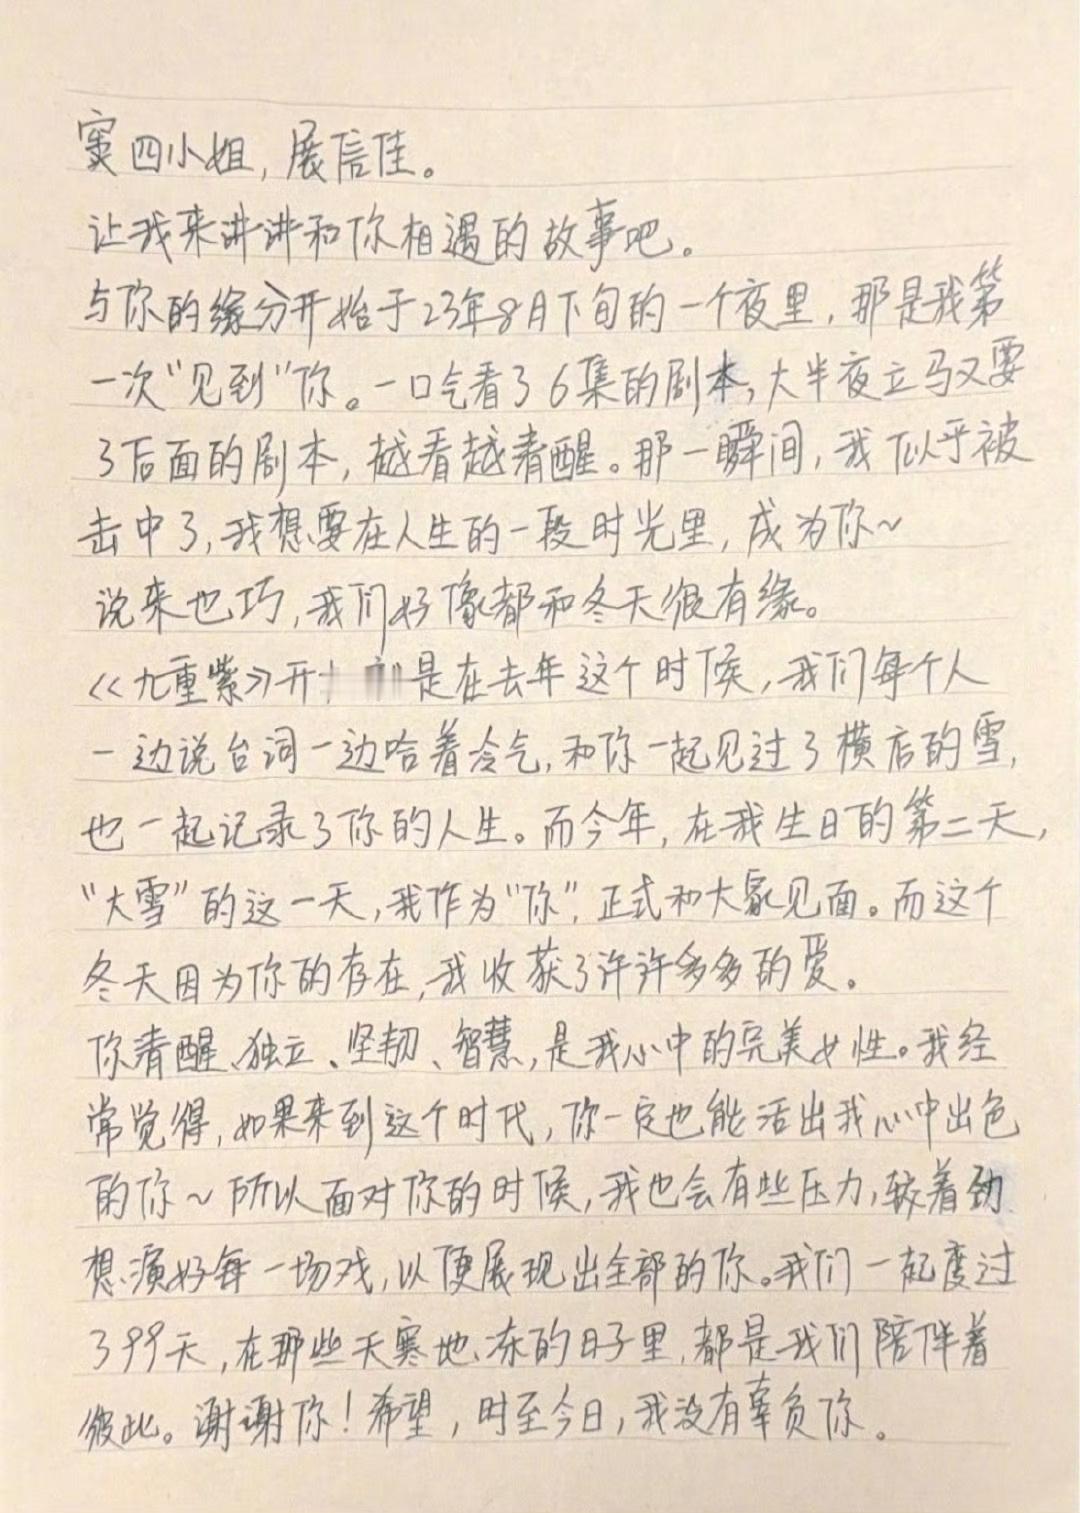 窦四小姐，展信佳。
让我来讲讲和你相遇的故事吧。
与你的缘分开始于23年8月下旬的一个夜里，那是我第
一次“见到”你。一口气看了6集的剧本，大半夜立马又要
了后面的剧本，越看越清醒。那一瞬间，我似乎被
击中了，我想要在人生的一段时光里，成为你～
说来也巧，我们好像都和冬天很有缘。
《九重紫》开 是在去年这个时候，我们每个人
一边说台词一边哈着冷气，和你一起见过了横店的雪，
也一起记录了你的人生。而今年，在我生日的第二天，
“大雪”的这一天，我作为“你”，正式和大家见面。而这个
冬天因为你的存在，我收获了许许多多的爱。
你清醒、独立、坚韧、智慧，是我心中的完美女性。我经
常觉得，如果来到这个时代，你一定也能活出我心中出色
的你～所以面对你的时候，我也会有些压力，较着劲
想演好每一场戏，以便展现出全部的你。我们一起度过
了99天，在那些天寒地冻的日子里，都是我们陪伴着
彼此。谢谢你！希望，时至今日，我没有辜负你。